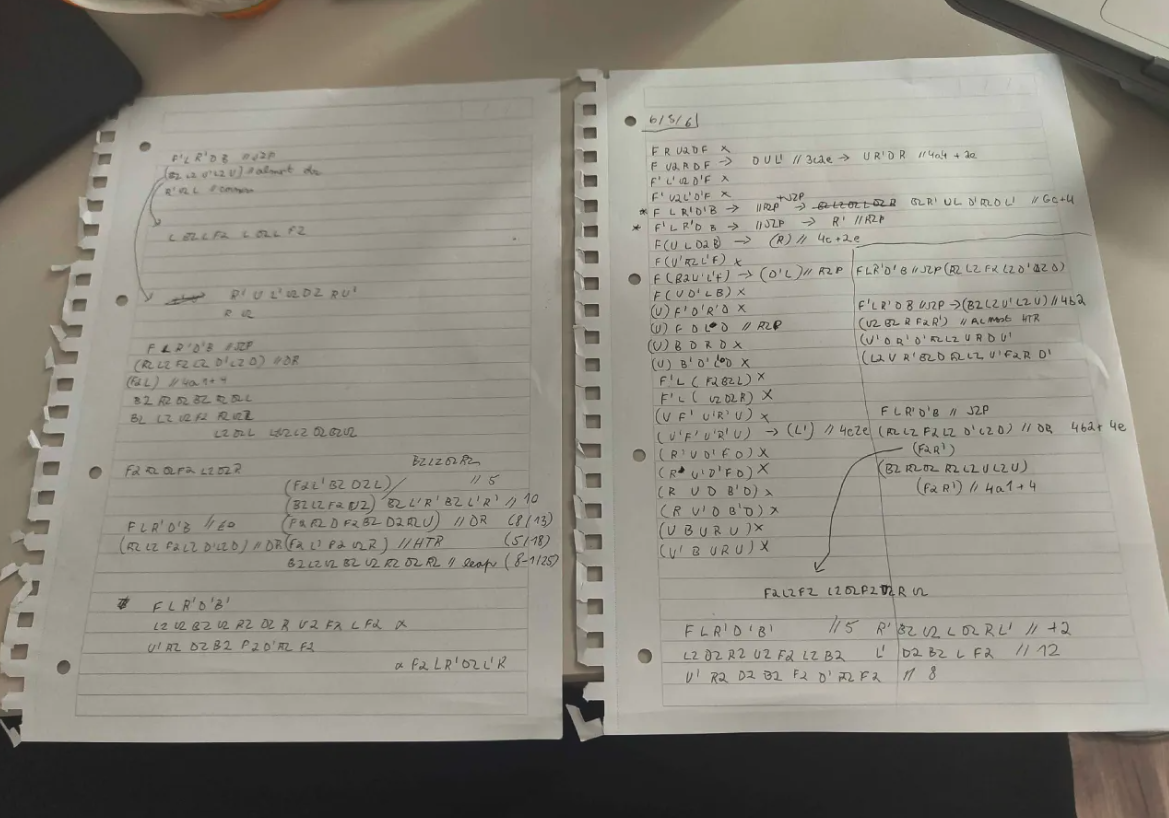 F'LR'DB //J2P
(B2 L2 U'L2 U) // almost dr
L D2 L F2 L D2 L F2
R' U L' U2 D2 R U'
R U2
F L R'D'B //J2P
(R2 L2 F2 L2 D'L2 D) //DR
(F2L) //4a1+4
B2 L2 U2 F2 R U2
(F2L'B2 D2L)
B2L2D2R2
//5
(B2L2F2U2) B2 L'R'B2 L'R' //10
F L R'D'B
(F2R2 D F2 B2 D2R2U) //DR (8/13)
(R2 L2 F2 L2 D'L2 D) //DR
(F2 L' F2 U2 R) //HTR (5/18)
B2 L2 U2 B2 U2 R2 D2 R2 // leap (8-1/25)
F L R'D'B'
L2 U2 B2 U2 R2 D2 R U2 F2 L F2 x
U'R2 D2 B2 F2 D'R2 F2
F2 L R'D2 L'R
6/5/6
F R U2 D F x
F U2 R D F → D U L' // 3c2e → U R'D R //4a4 + 2e
F'L'U2 D'F x
F'U2L'D'F x
* F L R'D'B → //R2P +J2P → D2R' U L D'R2D L' //6c+4
* F'L R'D B → //J2P → R' //R2P
F(U L D2 B) → (R) // 4c+2e
F(U'R2 L'F) x
F(B2U'L'F) → (D'L) // R2P
F(U D'L B) x
(U) F'D'R'D x
(U) F D L D // R2P
(U) B D R D x
(U) B'D'L D x
F'L (F2B2L) x
F'L (U2D2R) x
(U F' U'R'U) x
(U'F'U'R'U) → (L') // 4c2e
(R'U D'F D) x
(R U'D'F D) x
(R U D B'D) x
(R U'D B'D) x
(U B U R U) x
(U'B U R U) x
FLR'D'B //J2P (R2 L2 F2 L2 D'L2D)
F'LR'D B //J2P → (B2L2U'L2U) // 4b2
(U2 B2 R F2R') // Almost HTR
(U'D R'D'R2L2 U R D U'
(L2 U R'B2D R2L2 U'F2R D'
F L R'D'B // J2P
(R2 L2 F2 L2 D'L2D) // DR 4b2 + 4e
(F2R')
(B2 R2D2 R2L2 U L2U)
(F2R') // 4a1+4
F2L2F2 L2D2F2 D2R U2
F L R'D'B' //5 R'B2 U2 L D2 R L' // +2
L2 D2 R2 U2 F2 L2 B2 L' D2 B2 L F2 // 12
U' R2 D2 B2 F2 D' R2 F2 // 8